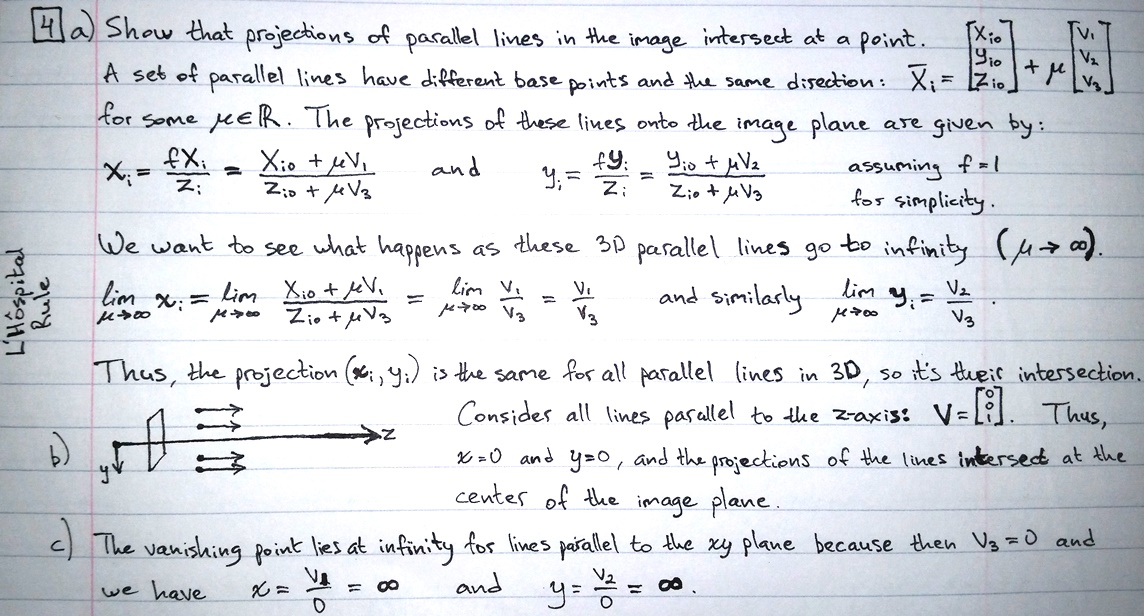 4 a) Show that projections of parallel lines in the image intersect at a point.
A set of parallel lines have different base points and the same direction: X̄ᵢ = [Xᵢ₀ Yᵢ₀ Zᵢ₀] + μ [V₁ V₂ V₃]
for some μ∈ℝ. The projections of these lines onto the image plane are given by:
xᵢ = fXᵢ/Zᵢ = (Xᵢ₀ + μV₁)/(Zᵢ₀ + μV₃) and yᵢ = fyᵢ/Zᵢ = (Yᵢ₀ + μV₂)/(Zᵢ₀ + μV₃) assuming f = 1
for simplicity.
We want to see what happens as these 3D parallel lines go to infinity (μ → ∞).
L'Hôspital
Rule
lim μ→∞ xᵢ = lim μ→∞ (Xᵢ₀ + μV₁)/(Zᵢ₀ + μV₃) = lim μ→∞ V₁/V₃ = V₁/V₃ and similarly lim μ→∞ yᵢ = V₂/V₃ .
Thus, the projection (xᵢ, yᵢ) is the same for all parallel lines in 3D, so it's their intersection.
b) y z
Consider all lines parallel to the z-axis: V = [0 0 1]. Thus,
x=0 and y=0, and the projections of the lines intersect at the
center of the image plane.
c) The vanishing point lies at infinity for lines parallel to the xy plane because then V₃ = 0 and
we have x = V₁/0 = ∞ and y = V₂/0 = ∞.